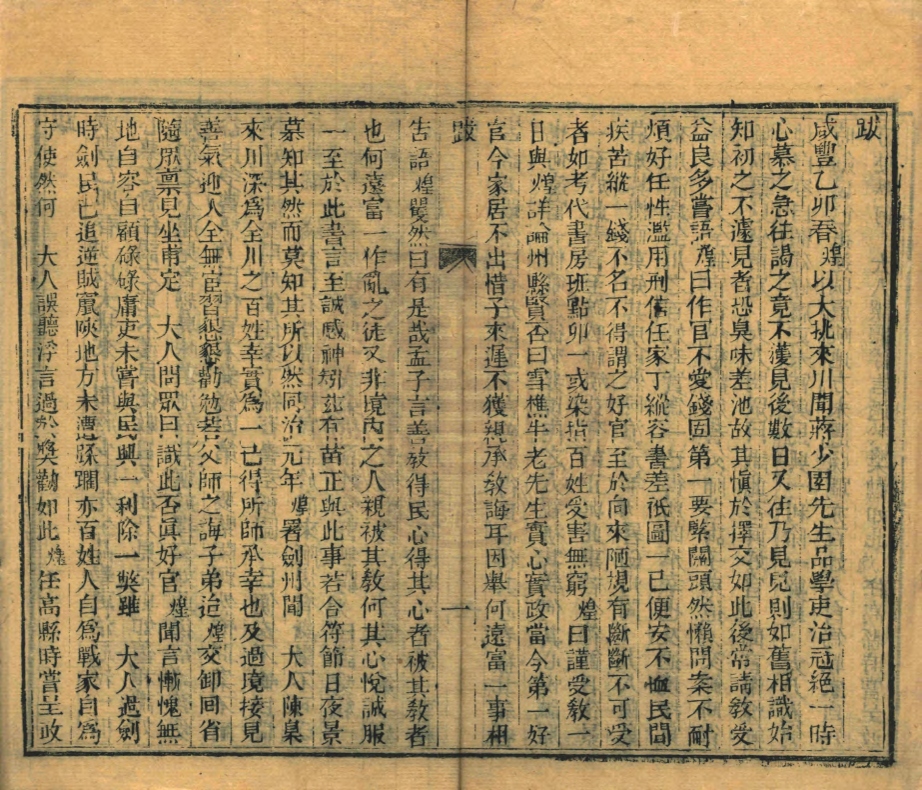 跋
咸豐乙卯春煌以大挑來川聞蔣少園先生品學吏治冠絕一時
心慕之急往謁之竟不獲見後數日又往乃見見則如舊相識始
知初之不遽見者恐臭味差池故其愼於擇交如此後常請敎受
益良多嘗語煌曰作官不愛錢固第一要緊關頭然懶問案不耐
煩好任性濫用刑信任家丁縱容書差祇圖一己便安不恤民間
疾苦縱一錢不名不得謂之好官至於向來陋規有斷斷不可受
者如考代書房班點卯一或染指百姓受害無窮煌曰謹受敎一
日與煌詳論州縣賢否曰雪樵牛老先生實心實政當今第一好
官今家居不出惜子來遲不獲親承敎誨耳因舉何遠富一事相
跋
一
告語煌矍然曰有是哉孟子言善敎得民心得其心者被其敎者
也何遠富一作亂之徒又非境內之人親被其敎何其心悅誠服
一至於此書言至誠感神矧茲有苗正與此事若合符節日夜景
慕知其然而莫知其所以然同治元年煌署劍州聞 大人陳臬
來川深爲全川之百姓幸實爲一己得所師承幸也及過境接見
善氣迎人全無官習懇懇勸勉若父師之誨子弟迨煌交卸回省
隨眾稟見坐甫定 大人問眾曰識此否眞好官煌聞言慚愧無
地自容自顧碌碌庸吏未嘗與民興一利除一獘雖 大人過劍
時劍民已追逆賊竄陝地方未遭蹂躪亦百姓人自爲戰家自爲
守使然何 大人誤聽浮言過於獎勸如此煌任高縣時嘗呈政